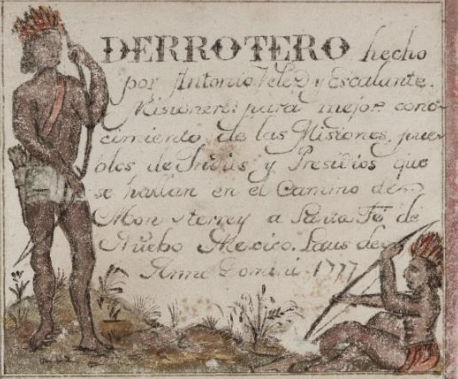 DERROTERO hecho
por Antonio Velez y Escalante.
Misionero: para mejor cono-
cimiento, de las Misiones, pue-
blos de Indios, y Presidios que
se hallan en el Camino de
Monterrey a Santa Fe de
Nuebo Mexico. Laus deo,
Anno Domini 1777